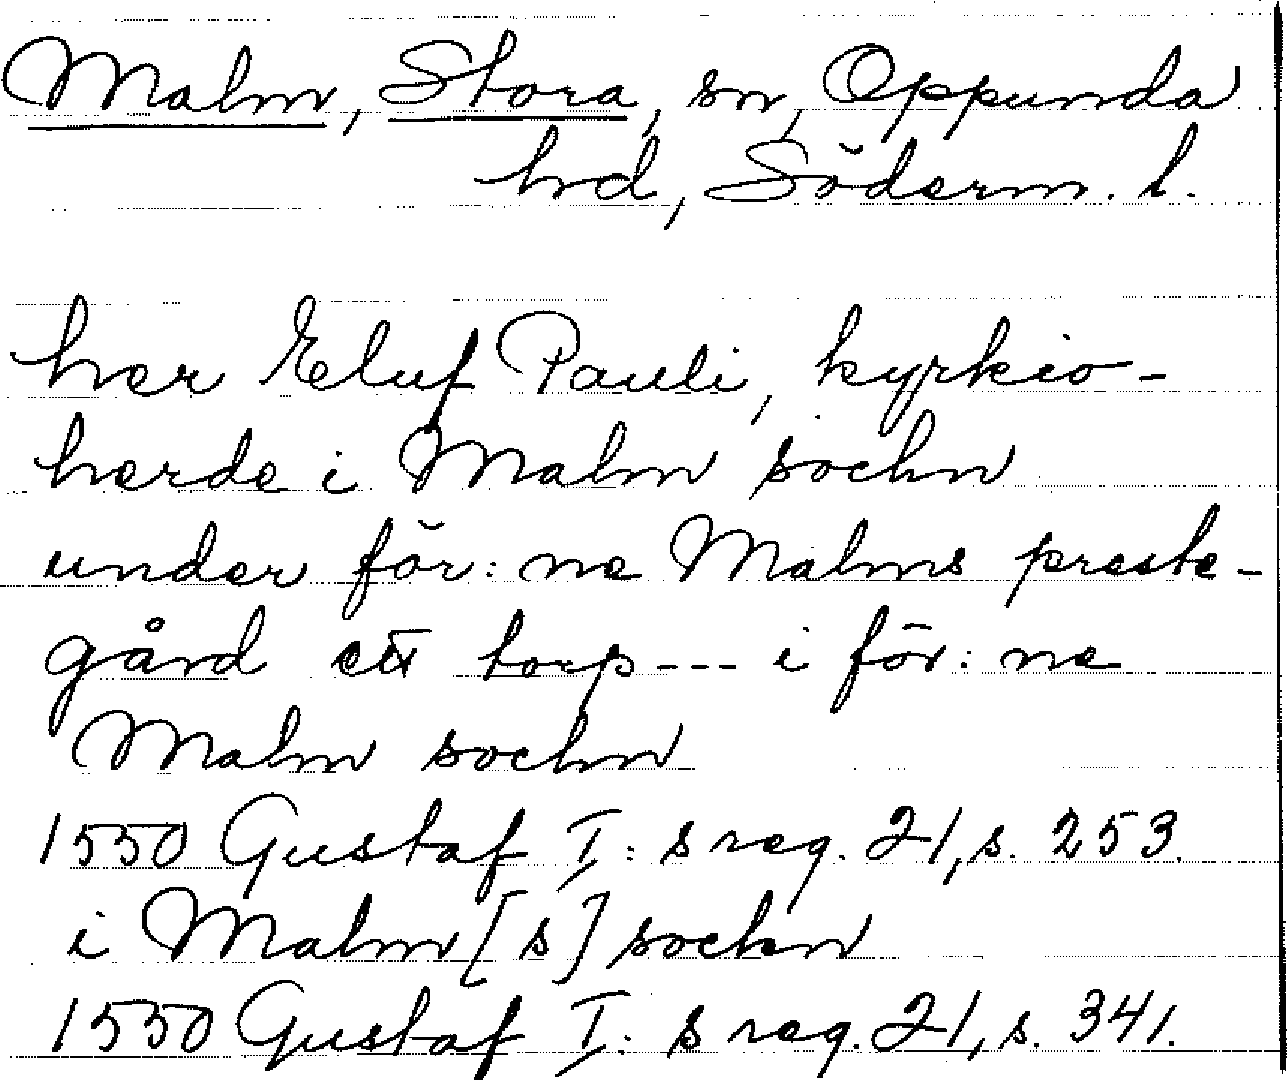 Malm, Stora, sn, Oppunda
hd, Söderm. l.
her Eluf Pauli, kyrkio-
herde i Malm sochn
under för: ne Malms preste-
gård ett torp --- i för: ne
Malm sochn
1550 Gustaf I: s reg. 21, s. 253.
i Malm[s] sochn
1550 Gustaf I: s reg. 21, s. 341.